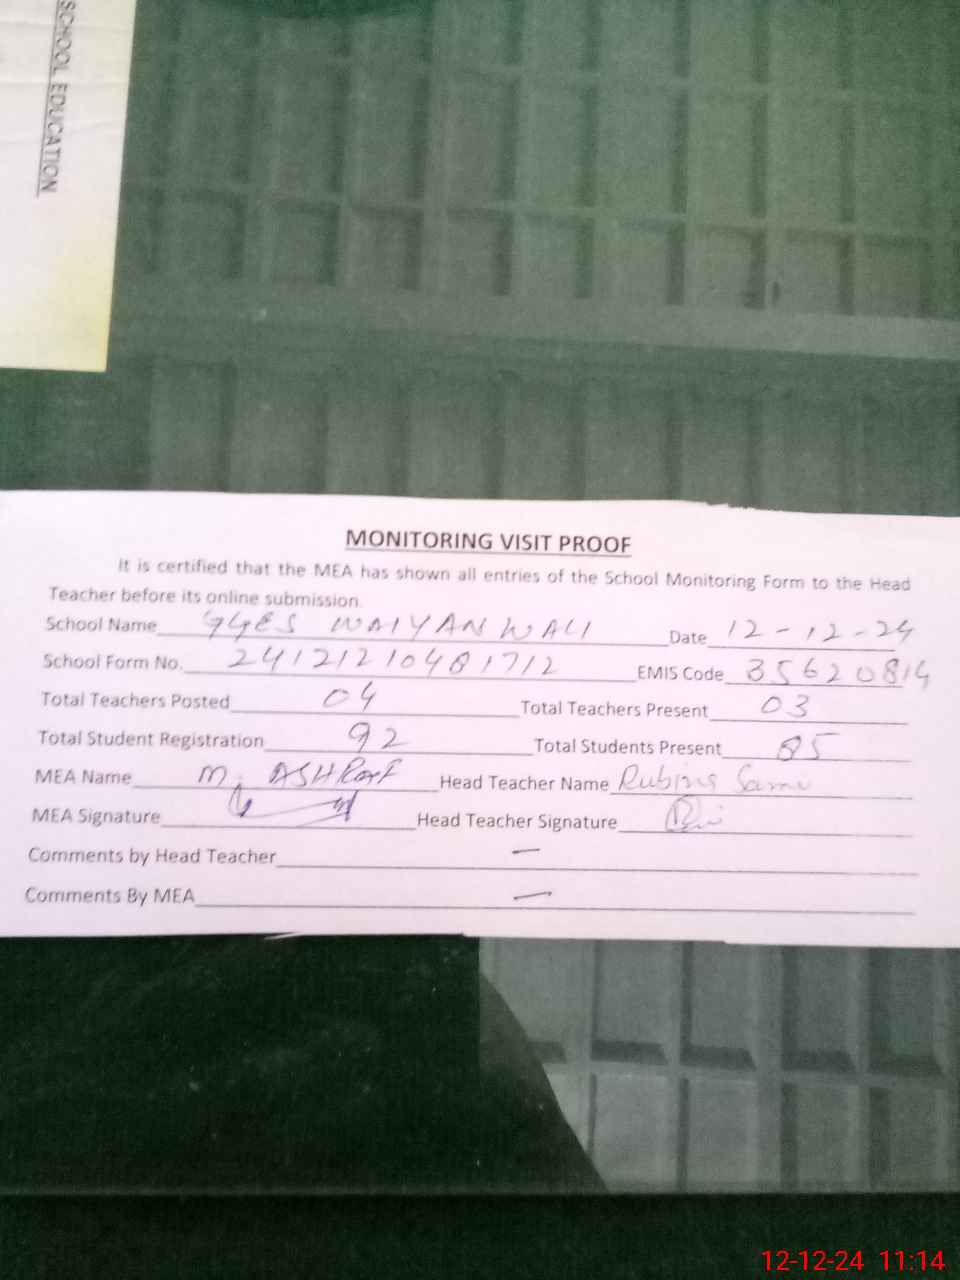 SCHOOL EDUCATION
MONITORING VISIT PROOF
It is certified that the MEA has shown all entries of the School Monitoring Form to the Head
Teacher before its online submission.
School Name GGES WAIYANWALI Date 12-12-24
School Form No. 24121210481712 EMIS Code 35620814
Total Teachers Posted 04 Total Teachers Present 03
Total Student Registration 92 Total Students Present 85
MEA Name M. ASHRAF Head Teacher Name Rubina
MEA Signature Head Teacher Signature
Comments by Head Teacher —
Comments By MEA —
12-12-24 11:14